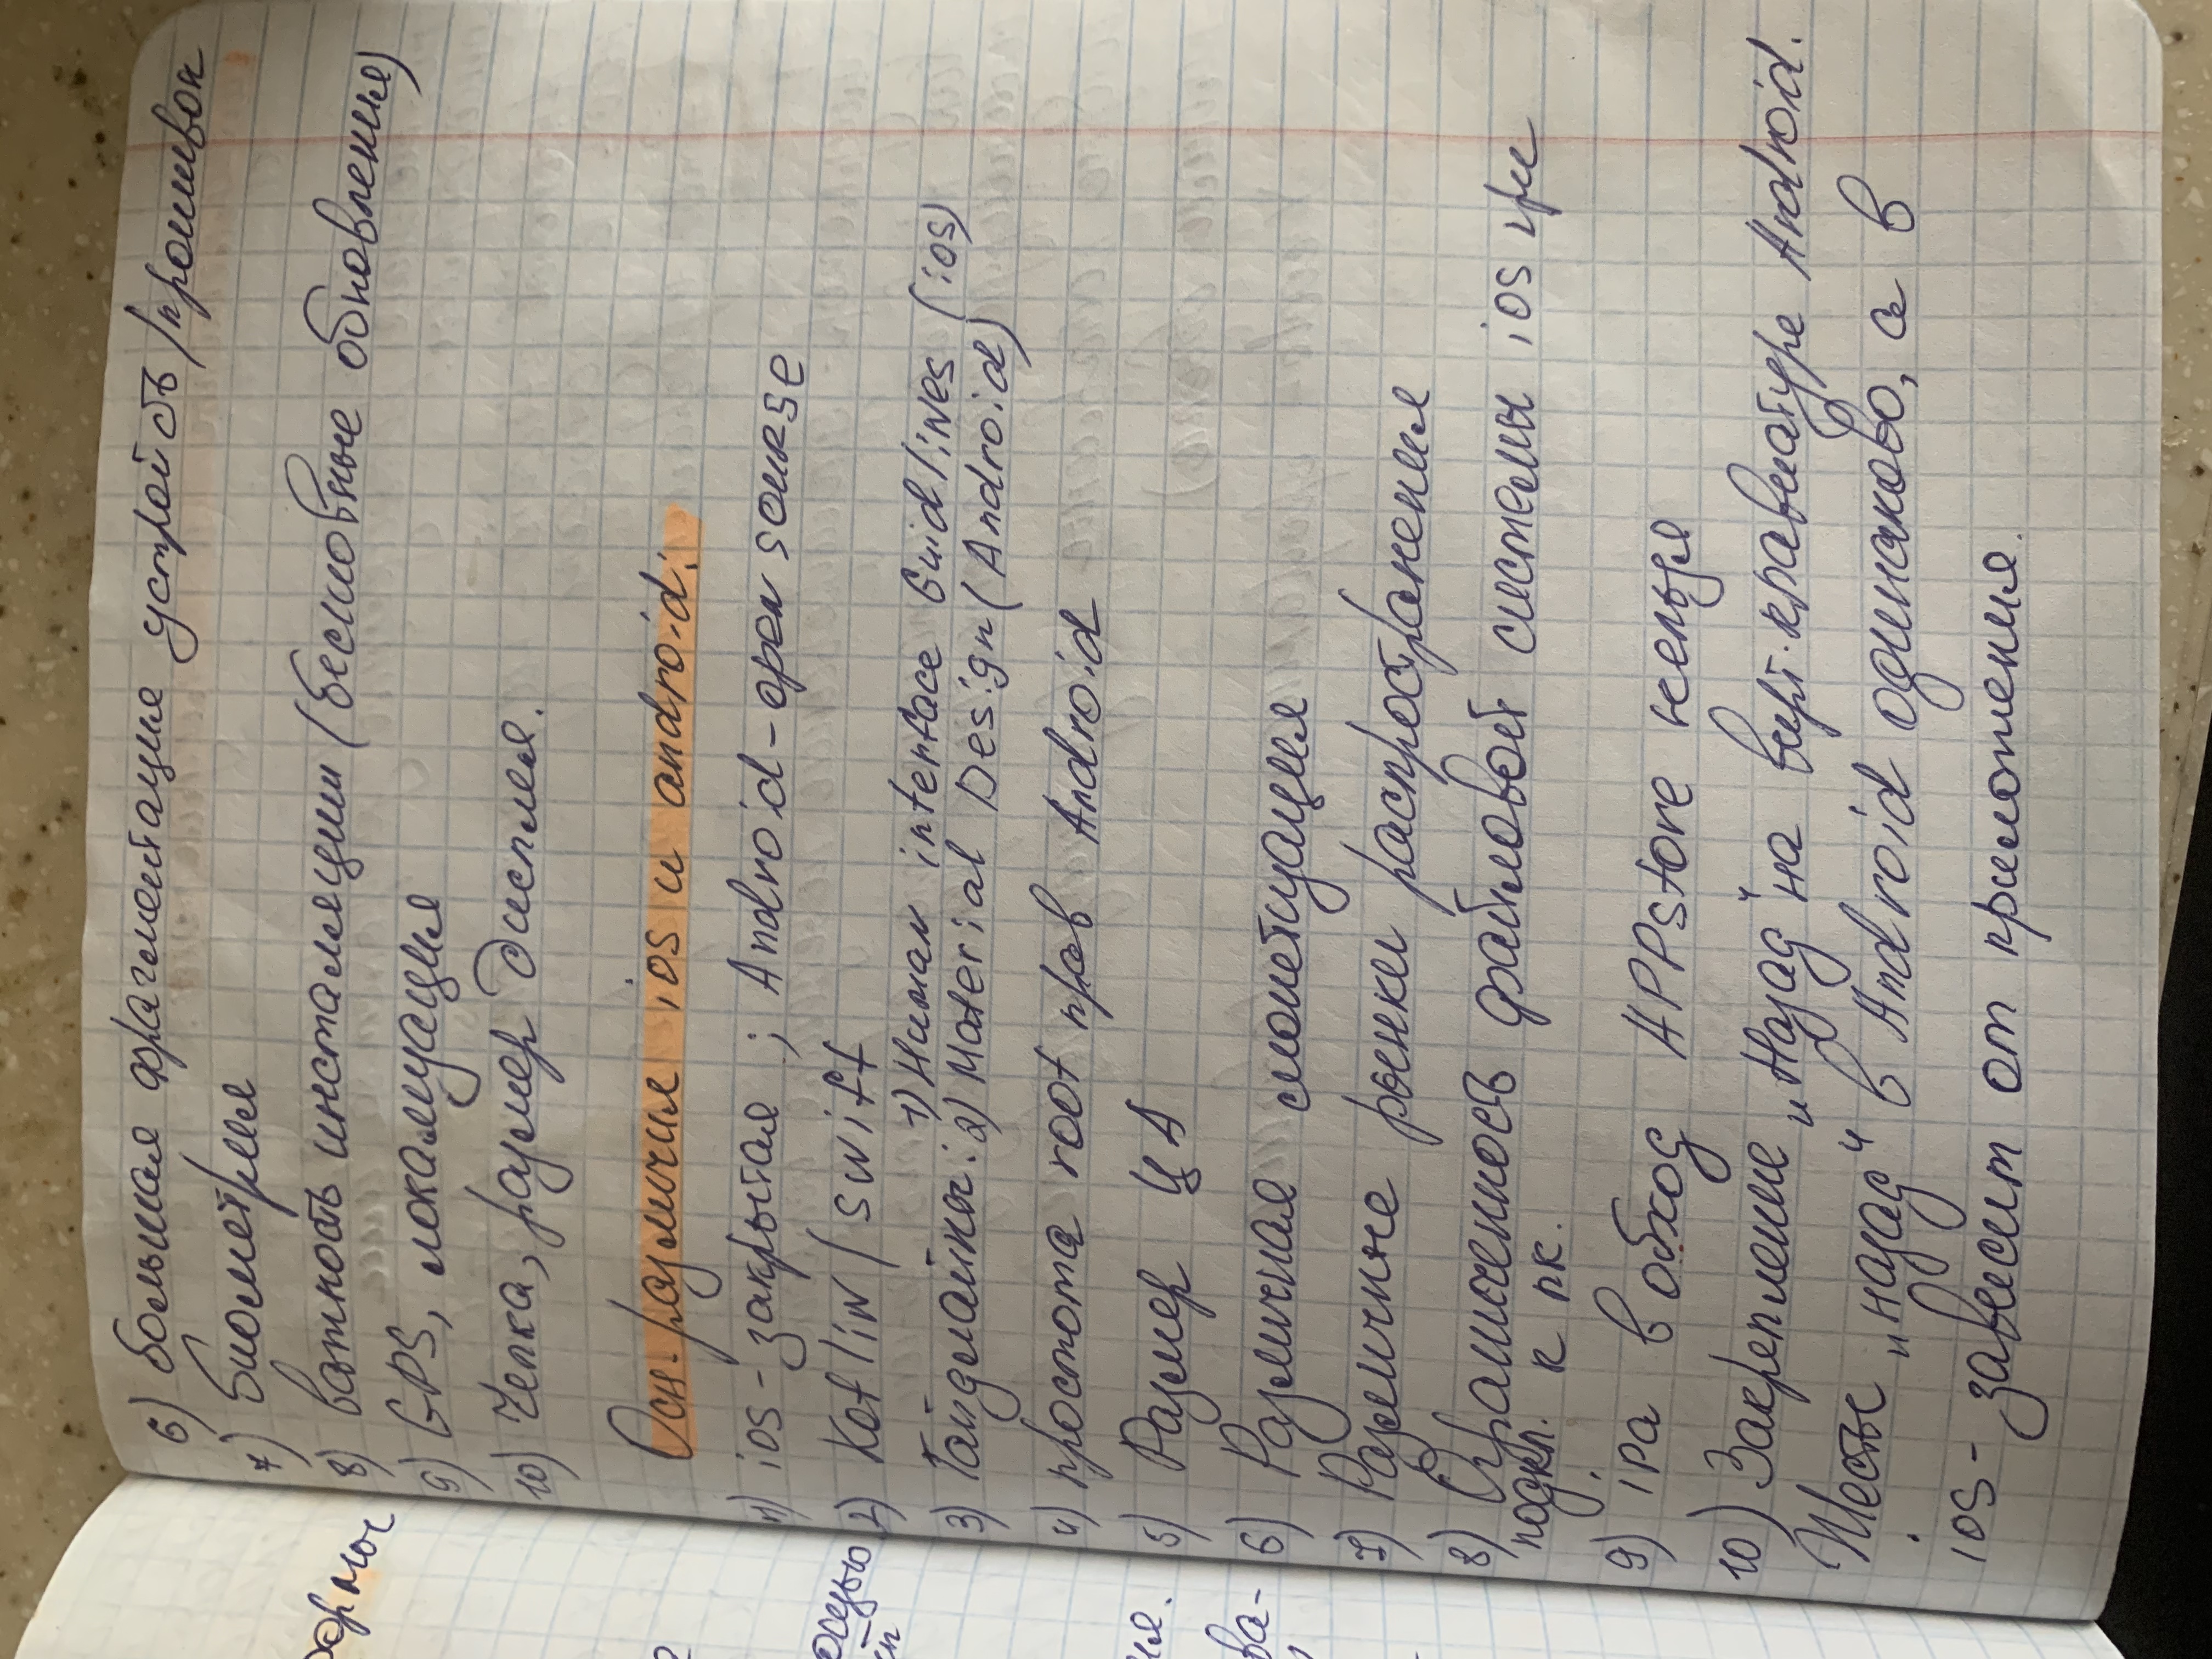 6) Большая фрагментация устройств/прошивок
7) Биометрия
8) важность инсталляции (бесшовные обновления)
9) GPS, локализация
10) Челка, размер дисплея.
Осн. различия ios и android:
1) ios - закрытая ; Android - open sourse
2) Kotlin / swift
3) Гайдлайны: 1) Human interface Guidlines (ios)
2) Material Design (Android)
4) простота root прав Android
5) Размер ЦА
6) Различная монетизация
7) Различные рынки распространения
8) Ограниченность файловой системы ios при
подкл. к пк.
9) ipa в обход APPstore нельзя
10) Закрепление „Назад“ на вирт. клавиатуре Android.
Жесты „назад“ в Android одинаково, а в
ios - зависит от приложения.